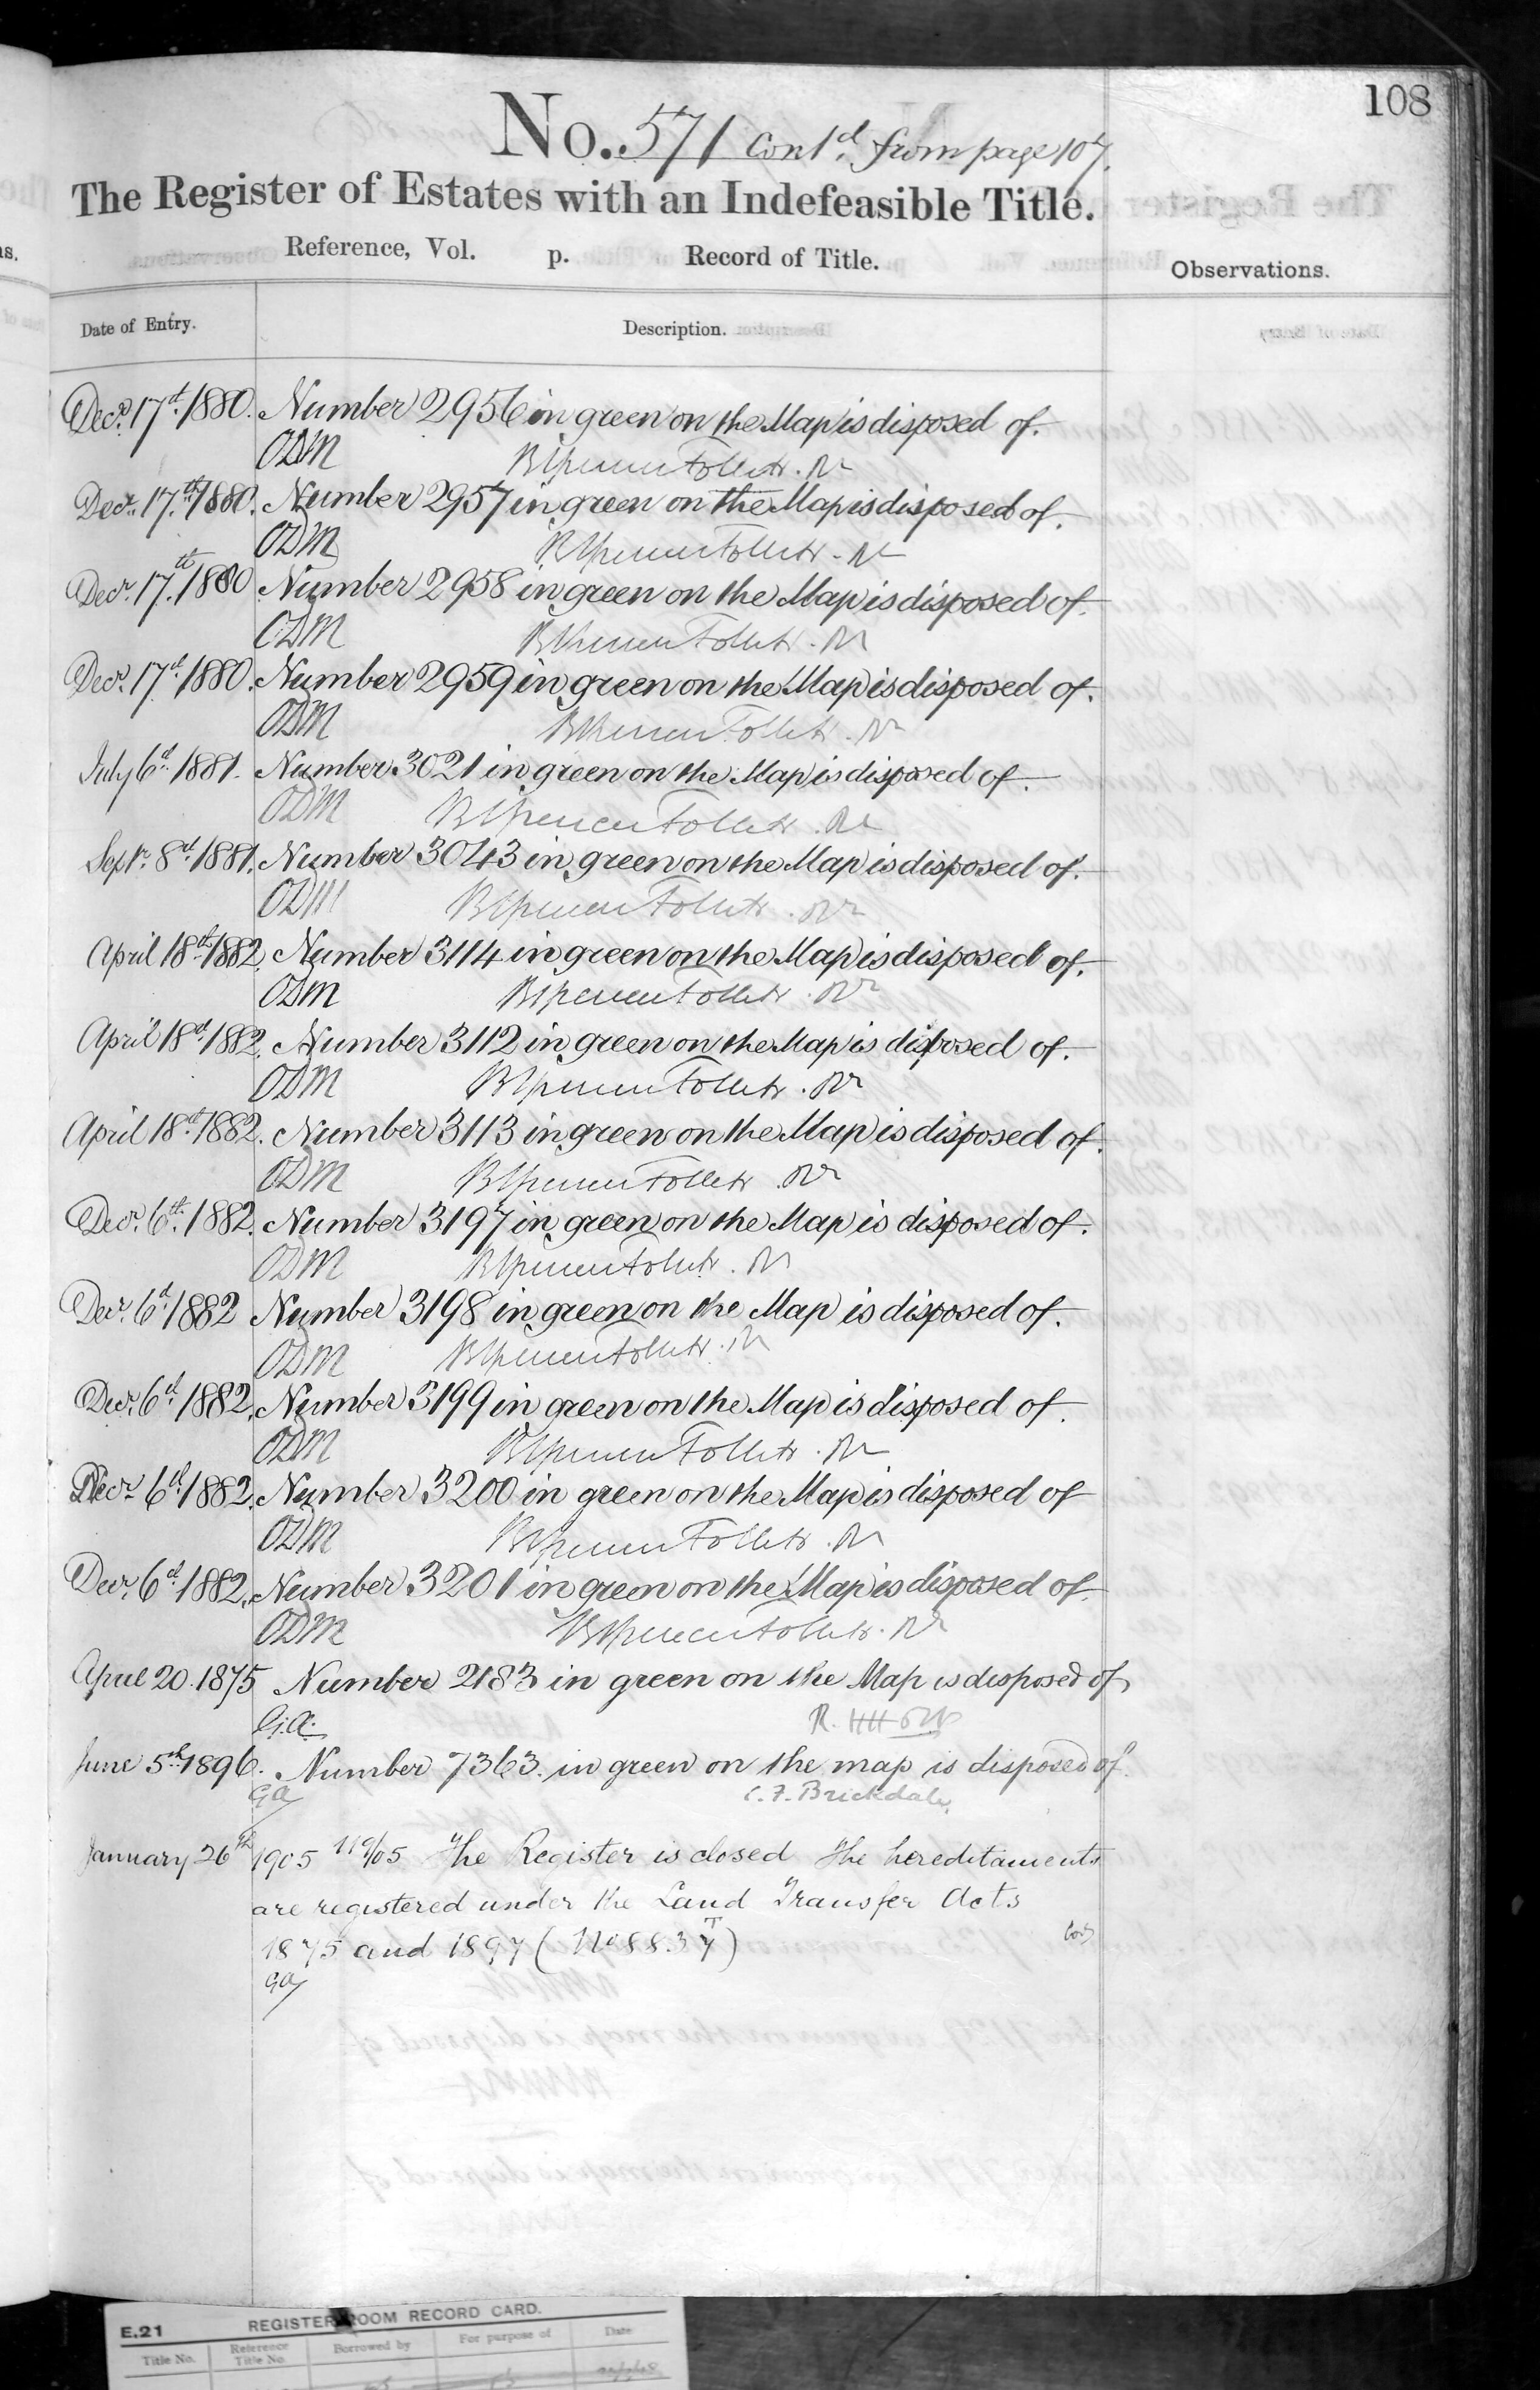 108
No. 571 Contd. from page 107.
The Register of Estates with an Indefeasible Title.
Reference, Vol. p. Record of Title.
Observations.
Date of Entry. Description.
Decr. 17th. 1880. Number 2956 in green on the Map is disposed of.
ODM
Decr. 17th. 1880. Number 2957 in green on the Map is disposed of.
ODM
Decr. 17th. 1880 Number 2958 in green on the Map is disposed of.
ODM
Decr. 17th. 1880. Number 2959 in green on the Map is disposed of.
ODM
July 6th. 1881. Number 3021 in green on the Map is disposed of.
ODM
Septr. 8th. 1881. Number 3043 in green on the Map is disposed of.
ODM
April 18th. 1882. Number 3114 in green on the Map is disposed of.
ODM
April 18th. 1882. Number 3112 in green on the Map is disposed of.
ODM
April 18th. 1882. Number 3113 in green on the Map is disposed of.
ODM
Decr. 6th. 1882. Number 3197 in green on the Map is disposed of.
ODM
Decr. 6th. 1882 Number 3198 in green on the Map is disposed of.
ODM
Decr. 6th. 1882. Number 3199 in green on the Map is disposed of.
ODM
Decr. 6th. 1882. Number 3200 in green on the Map is disposed of
ODM
Decr. 6th. 1882. Number 3201 in green on the Map is disposed of.
ODM
April 20. 1875 Number 2183 in green on the Map is disposed of
G.A.
June 5th. 1896. Number 7363. in green on the map is disposed of.
GA C. F. Brickdale
January 26th 1905 119/05 The Register is closed The hereditaments
are registered under the Land Transfer Acts
1875 and 1897 (No 88.37)
GA
E.21 REGISTER ROOM RECORD CARD.
Title No. Reference Title No. Borrowed by For purpose of Date